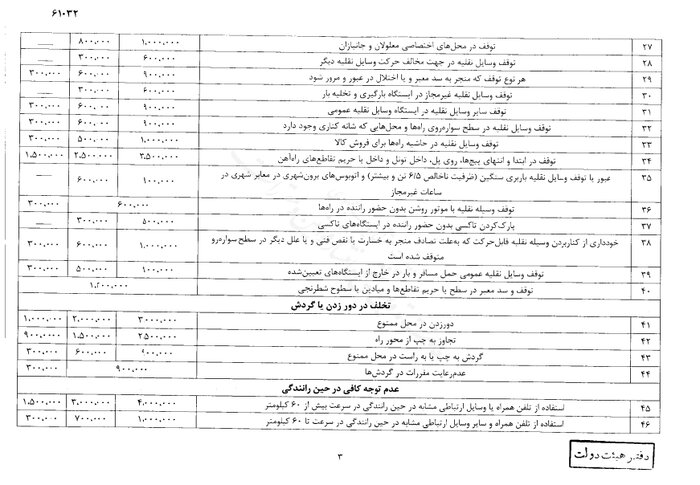 ۶۱۰۳۲
۲۷ توقف در محل‌های اختصاصی معلولان و جانبازان ۱.۰۰۰.۰۰۰ ۸۰۰.۰۰۰ ــــ
۲۸ توقف وسایل نقلیه در جهت مخالف حرکت وسایل نقلیه دیگر ۶۰۰.۰۰۰ ۳۰۰.۰۰۰ ــــ
۲۹ هر نوع توقف که منجر به سد معبر و یا اختلال در عبور و مرور شود ۹۰۰.۰۰۰ ۶۰۰.۰۰۰ ۳۰۰.۰۰۰
۳۰ توقف وسایل نقلیه غیرمجاز در ایستگاه بارگیری و تخلیه بار ۶۰۰.۰۰۰ ۳۰۰.۰۰۰ ــــ
۳۱ توقف سایر وسایل نقلیه در ایستگاه وسایل نقلیه عمومی ۹۰۰.۰۰۰ ۶۰۰.۰۰۰ ۳۰۰.۰۰۰
۳۲ توقف وسایل نقلیه در سطح سواره‌روی راه‌ها و محل‌هایی که شانه کناری وجود دارد ۹۰۰.۰۰۰ ۶۰۰.۰۰۰ ۳۰۰.۰۰۰
۳۳ توقف وسایل نقلیه در حاشیه راه‌ها برای فروش کالا ۱.۰۰۰.۰۰۰ ۵۰۰.۰۰۰ ۳۰۰.۰۰۰
۳۴ توقف در ابتدا و انتهای پیچ‌ها، روی پل، داخل تونل و داخل یا حریم تقاطع‌های راه‌آهن ۲.۵۰۰.۰۰۰ ۲.۵۰۰.۰۰۰ ۱.۵۰۰.۰۰۰
۳۵ عبور یا توقف وسایل نقلیه باربری سنگین (ظرفیت ناخالص ۶/۵ تن و بیشتر) و اتوبوس‌های برون‌شهری در معابر شهری در ۱۰۰.۰۰۰ ۶۰۰.۰۰۰ ــــ
ساعات غیرمجاز
۳۶ توقف وسیله نقلیه با موتور روشن بدون حضور راننده در راه‌ها ۶۰۰.۰۰۰ ۳۰۰.۰۰۰
۳۷ پارک‌کردن تاکسی بدون حضور راننده در ایستگاه‌های تاکسی ۵۰۰.۰۰۰ ۳۰۰.۰۰۰ ــــ
۳۸ خودداری از کناربردن وسیله نقلیه قابل‌حرکت که به‌علت تصادف منجر به خسارت یا نقص فنی و یا علل دیگر در سطح سواره‌رو ۱.۰۰۰.۰۰۰ ۶۰۰.۰۰۰ ۳۰۰.۰۰۰
متوقف شده است
۳۹ توقف وسایل نقلیه عمومی حمل مسافر و بار در خارج از ایستگاه‌های تعیین‌شده ۱۰۰.۰۰۰ ۵۰۰.۰۰۰ ۳۰۰.۰۰۰
۴۰ توقف و سد معبر در سطح یا حریم تقاطع‌ها و میادین با سطوح شطرنجی ۱.۲۰۰.۰۰۰
تخلف در دور زدن یا گردش
۴۱ دورزدن در محل ممنوع ۳۰۰۰.۰۰۰ ۲.۰۰۰.۰۰۰ ۱.۰۰۰.۰۰۰
۴۲ تجاوز به چپ از محور راه ۲۵۰۰.۰۰۰ ۱.۵۰۰.۰۰۰ ۹۰۰.۰۰۰
۴۳ گردش به چپ یا به راست در محل ممنوع ۹۰۰.۰۰۰ ۶۰۰.۰۰۰ ۳۰۰.۰۰۰
۴۴ عدم‌رعایت مقررات در گردش‌ها ۹۰۰.۰۰۰ ۳۰۰.۰۰۰
عدم توجه کافی در حین رانندگی
۴۵ استفاده از تلفن همراه یا وسایل ارتباطی مشابه در حین رانندگی در سرعت بیش از ۶۰ کیلومتر ۴.۰۰۰.۰۰۰ ۳.۰۰۰.۰۰۰ ۱.۵۰۰.۰۰۰
۴۶ استفاده از تلفن همراه و سایر وسایل ارتباطی مشابه در حین رانندگی در سرعت تا ۶۰ کیلومتر ۱.۰۰۰.۰۰۰ ۷۰۰.۰۰۰ ۳۰۰.۰۰۰
۳
دفتر هیئت دولت